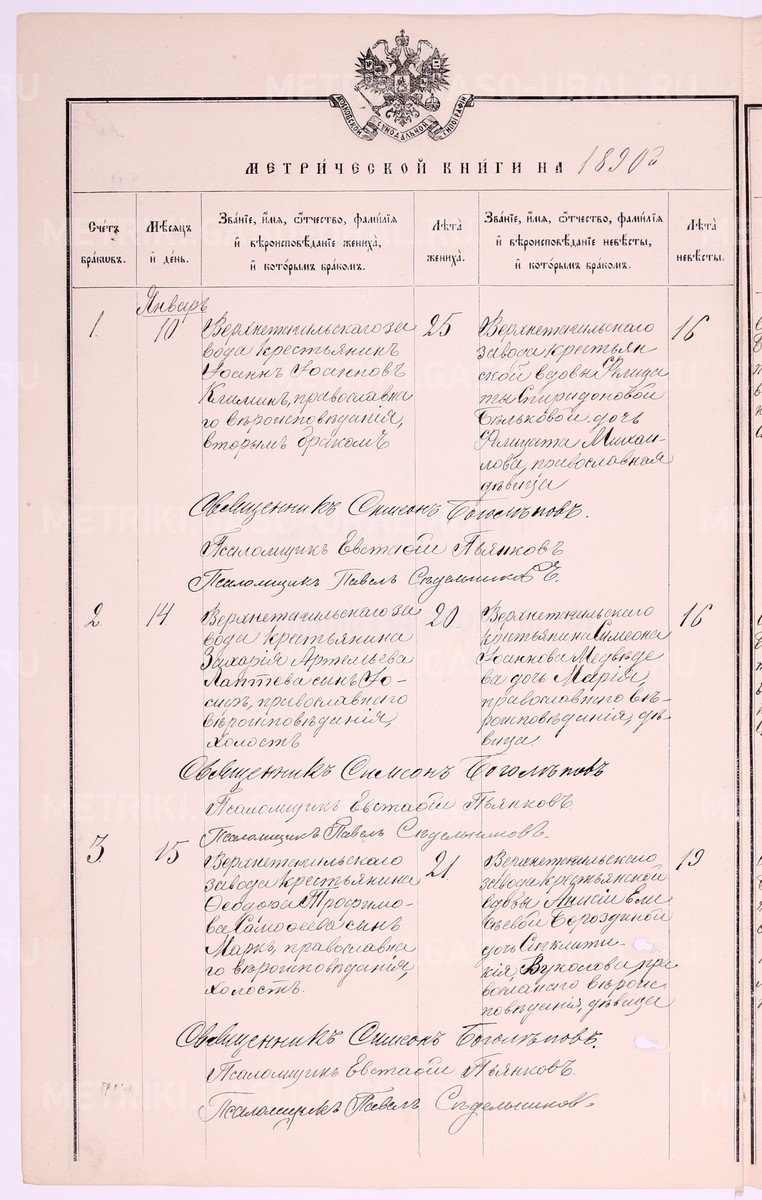 МОСКОВСКОЙ СѴНОДАЛЬНОЙ ТИПОГРАФІИ
МЕТРИ́ЧЕСКОЙ КНИ́ГИ НА 1890 й
Сче́тъ бра́ковъ.
Мѣ́сяцъ и҆ де́нь.
Зва́нїе, и҆́мѧ, ѻ҆́тчество, фами́лїѧ и҆ вѣроисповѣ́данїе жениха̀, и҆ кото́рымъ бра́комъ.
Лѣ́та жениха̀.
Зва́нїе, и҆́мѧ, ѻ҆́тчество, фами́лїѧ и҆ вѣроисповѣ́данїе невѣ́сты, и҆ кото́рымъ бра́комъ.
Лѣ́та невѣ́сты.
Январь
1.
10
Верхнетагильскаго за
вода крестьянинъ
Іоаннъ Іоанновъ
Климинъ, православна
го вѣроисповѣданія,
вторымъ бракомъ
25
Верхнетагильскаго
завода крестьян
ской вдовы Фелица
ты Спиридоновой
Бѣльковой дочь
Фелицата Михаи
лова, православная
дѣвица
16
Священникъ Симеонъ Боголѣповъ.
Псаломщикъ Евстафій Пьянковъ
Псаломщикъ Павелъ Сѣдельниковъ.
2
14
Верхнетагильскаго за
вода крестьянина
Захарія Артемьева
Лаптева сынъ Іо-
сифъ, православнаго
вѣроисповѣданія,
холостъ
20.
Верхнетагильскаго
крестьянина Симеона
Іоаннова Медвѣде
ва дочь Марія,
православнаго вѣ-
роисповѣданія, дѣ-
вица.
16
Священникъ Симеонъ Боголѣповъ
Псаломщикъ Евстафій Пьянковъ.
Псаломщикъ Павелъ Сѣдельниковъ.
3
15
Верхнетагильскаго
завода крестьянина
Ѳеодора Трофимо-
ва Самоѳеева сынъ
Маркъ, православна
го вѣроисповѣданія,
холостъ.
21.
Верхнетагильскаго
завода крестьянской
вдовы Анисіи Ели
сѣевой Бороздиной
дочь Синклити-
кія Вуколова, пра
вославнаго вѣроис
повѣданія, дѣвица
19
Священникъ Симеонъ Боголѣповъ.
Псаломщикъ Евстафій Пьянковъ.
Псаломщикъ Павелъ Сѣдельниковъ